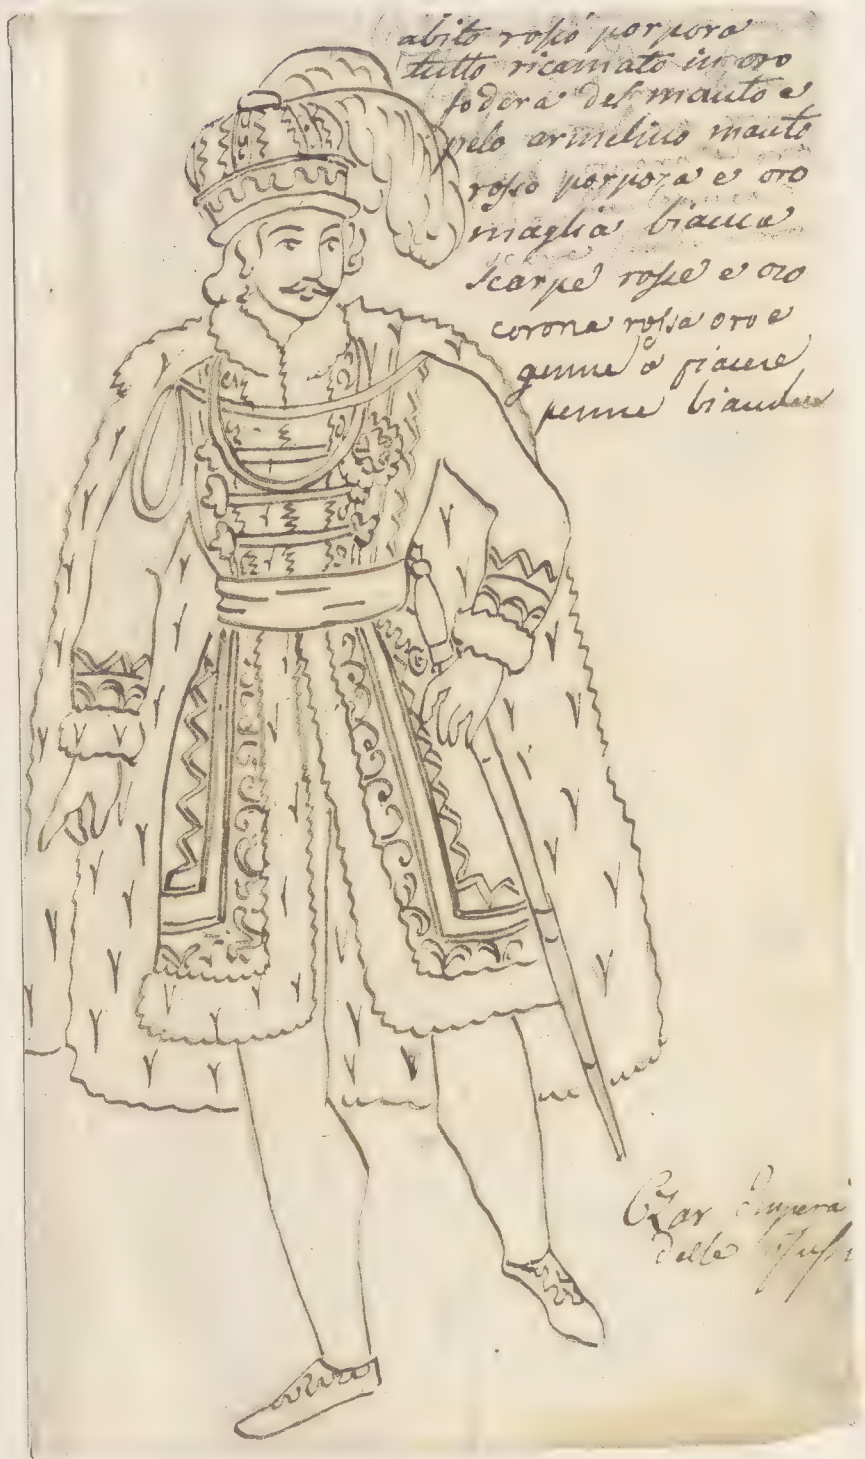 abito rosso porpora
tutto ricamato in oro
fodera del manto e
pelo armelino manto
rosso porpora e oro
maglia biacca
scarpe rosse e oro
corona rossa oro e
gemme a piacere
penne bianche
Czar Impera
delle